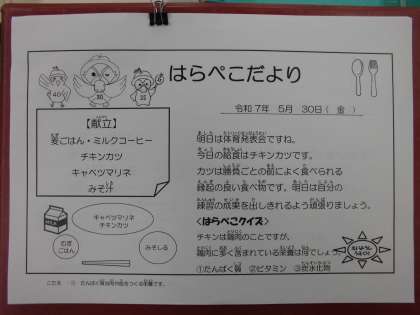 はらぺこだより
令和7年　5月　30日（金）
【献立】
麦ごはん・ミルクコーヒー
チキンカツ
キャベツマリネ
みそ汁
明日は体育発表会ですね。
今日の給食はチキンカツです。
カツは勝負ごとの前によく食べられる
縁起の良い食べ物です。明日は自分の
練習の成果を出しきれるよう頑張りましょう。
<はらぺこクイズ>
チキンは鶏肉のことですが、
鶏肉に多く含まれている栄養は何でしょう。
①たんぱく質　②ビタミン　③炭水化物
キャベツマリネ
チキンカツ
むぎ
ごはん
みそしる